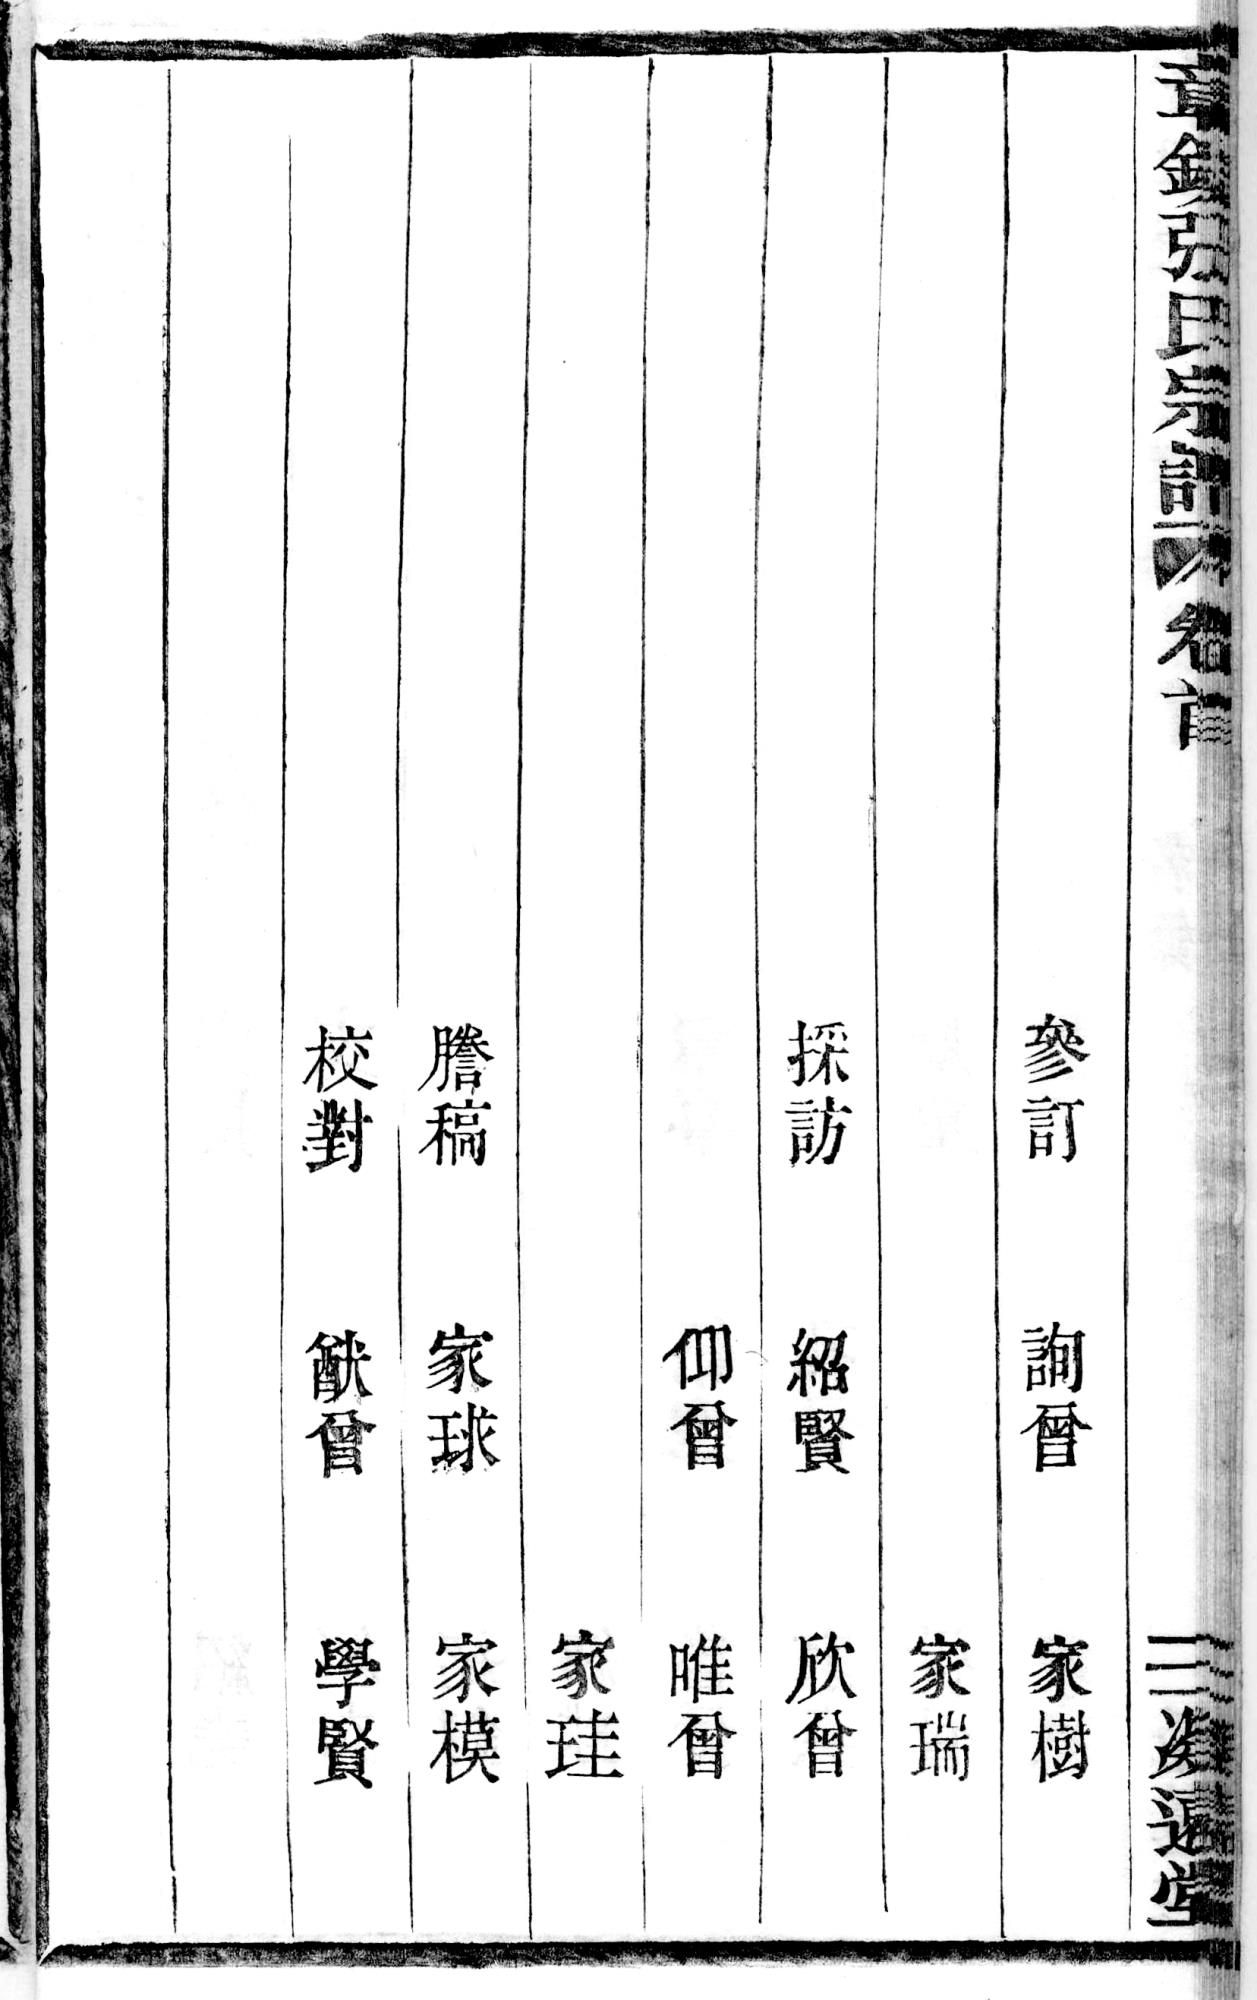 張氏宗譜 卷首
凝遠堂
參訂 詢曾 家樹
家瑞
採訪 紹賢 欣曾
仰曾 唯曾
家珪
謄稿 家球 家模
校對 猷曾 學賢